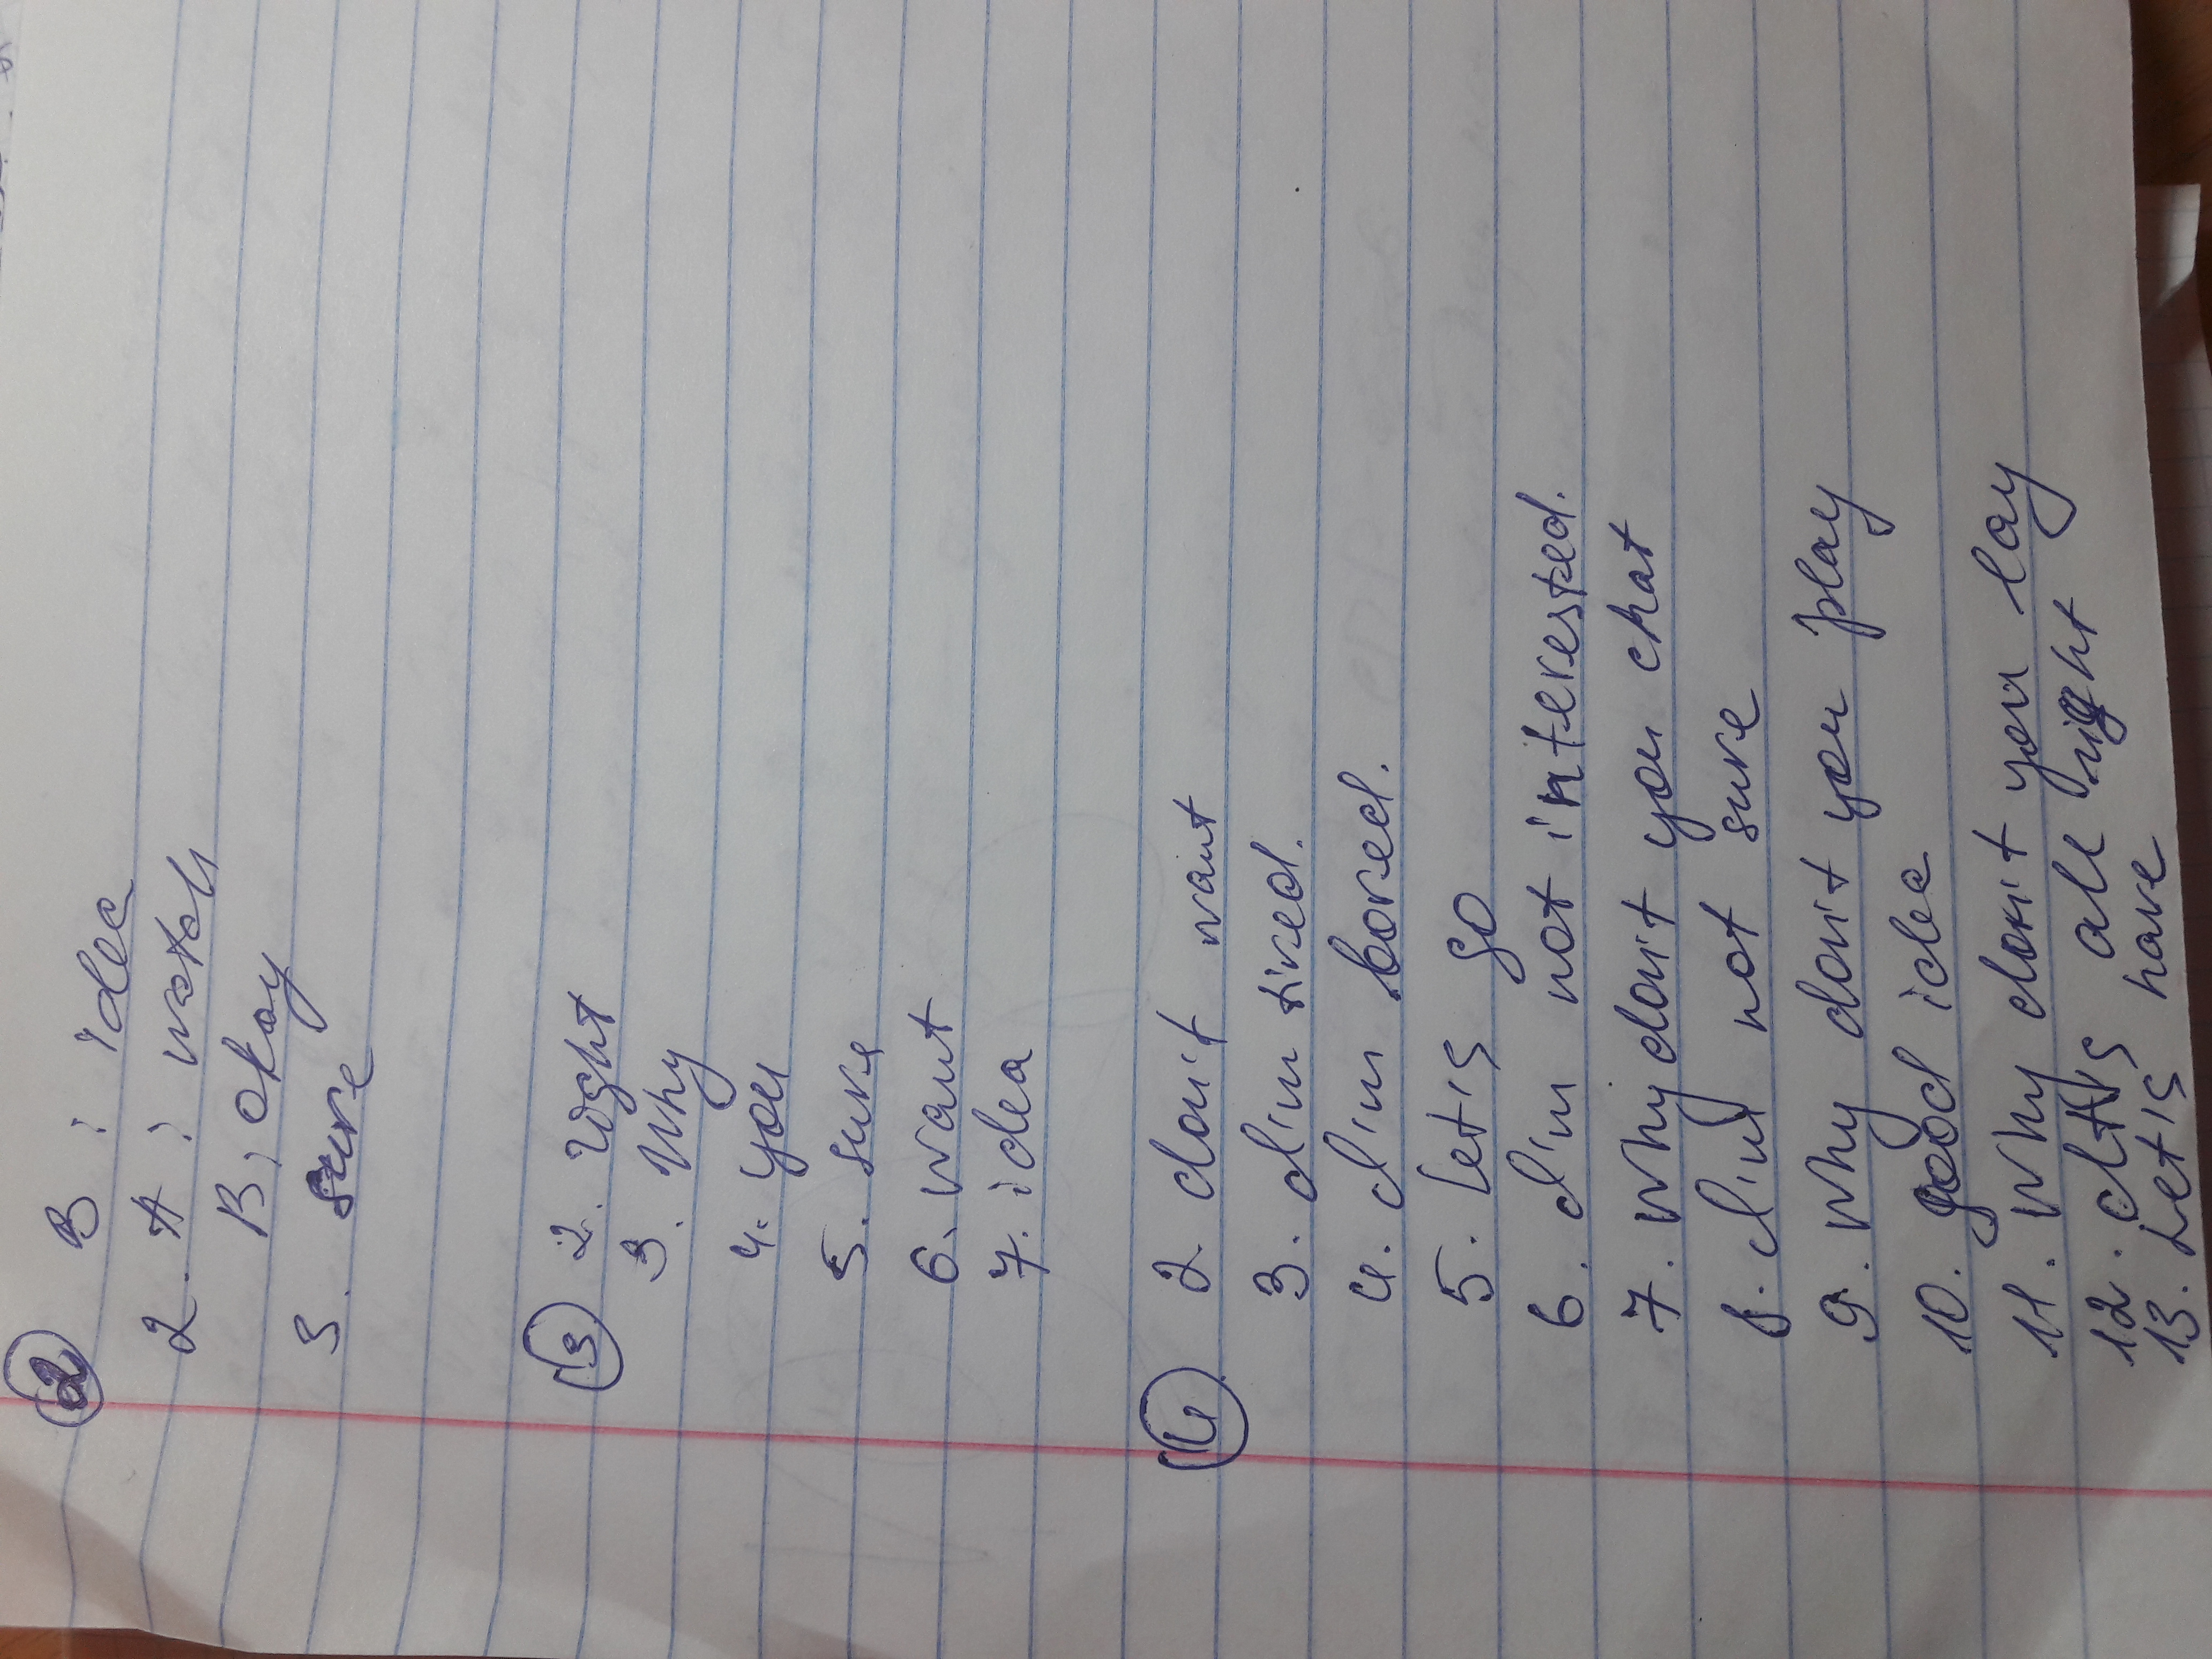 ② B: idea
2. A: watch
B: okay
3. sure
③ 2. right
3. Why
4. you
5. sure
6. want
7. idea
④ 2. don't want
3. I'm tired.
4. I'm bored.
5. Let's go
6. I'm not interested.
7. Why don't you chat
8. I'm not sure
9. Why don't you play
10. good idea
11. Why don't you lay
12. It's all right
13. Let's have